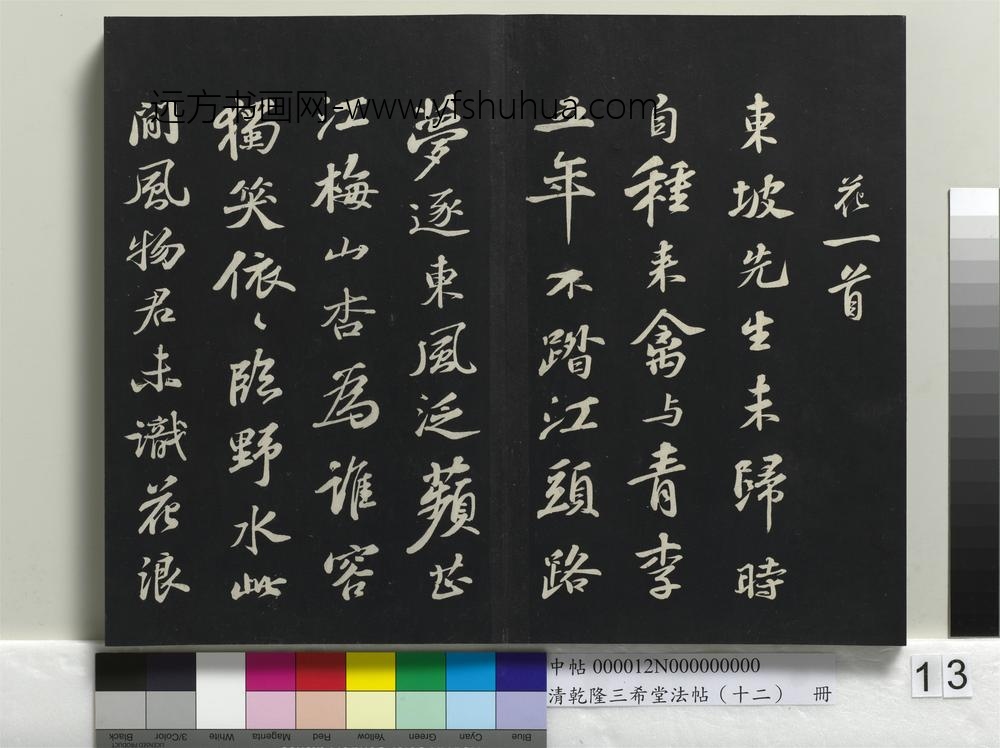 远方书画网-www.yfshuhua.com
花一首
東坡先生未歸時
自種来禽与青李
五年不踏江頭路
夢逐東風泛蘋芷
江梅山杏為誰容
獨笑依〻臨野水此
間風物君未識花浪
中帖 000012N000000000
清乾隆三希堂法帖（十二） 冊
13
Black
3/Color
White
Magenta
Red
Yellow
Green
Cyan
Blue